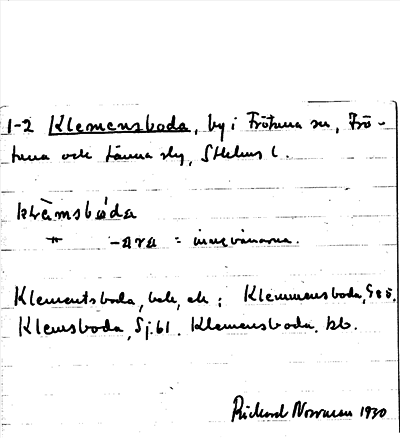 1-2 Klemensboda, by i Frötuna sn, Frö-
tuna och Länna slg, Sthlms l.
klæ̀msbo̊da
" -ara = invånarna.
Klementsboda, bok, ek; Klemmensboda, GEÖ.
Klemsboda, Sj. 61. Klemensboda, kb.
Richard Norrman 1930